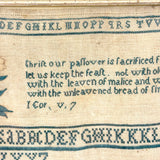 DEFGHIKLMNOPPQRSTUV
Christ our passover is sacrificed f
let us keep the feast. not with ol
with the leaven of malice and w
with the unleavened bread of sin
I Cor. v. 7
ABBCDEFGHIKKKK